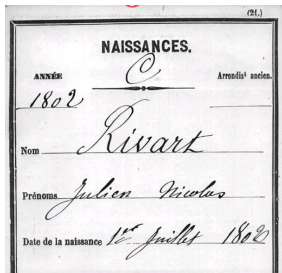 (21.)
NAISSANCES.
C
ANNÉE
Arrondist ancien.
1802
Nom Rivart
Prénoms Julien Nicolas
Date de la naissance 1er Juillet 1802